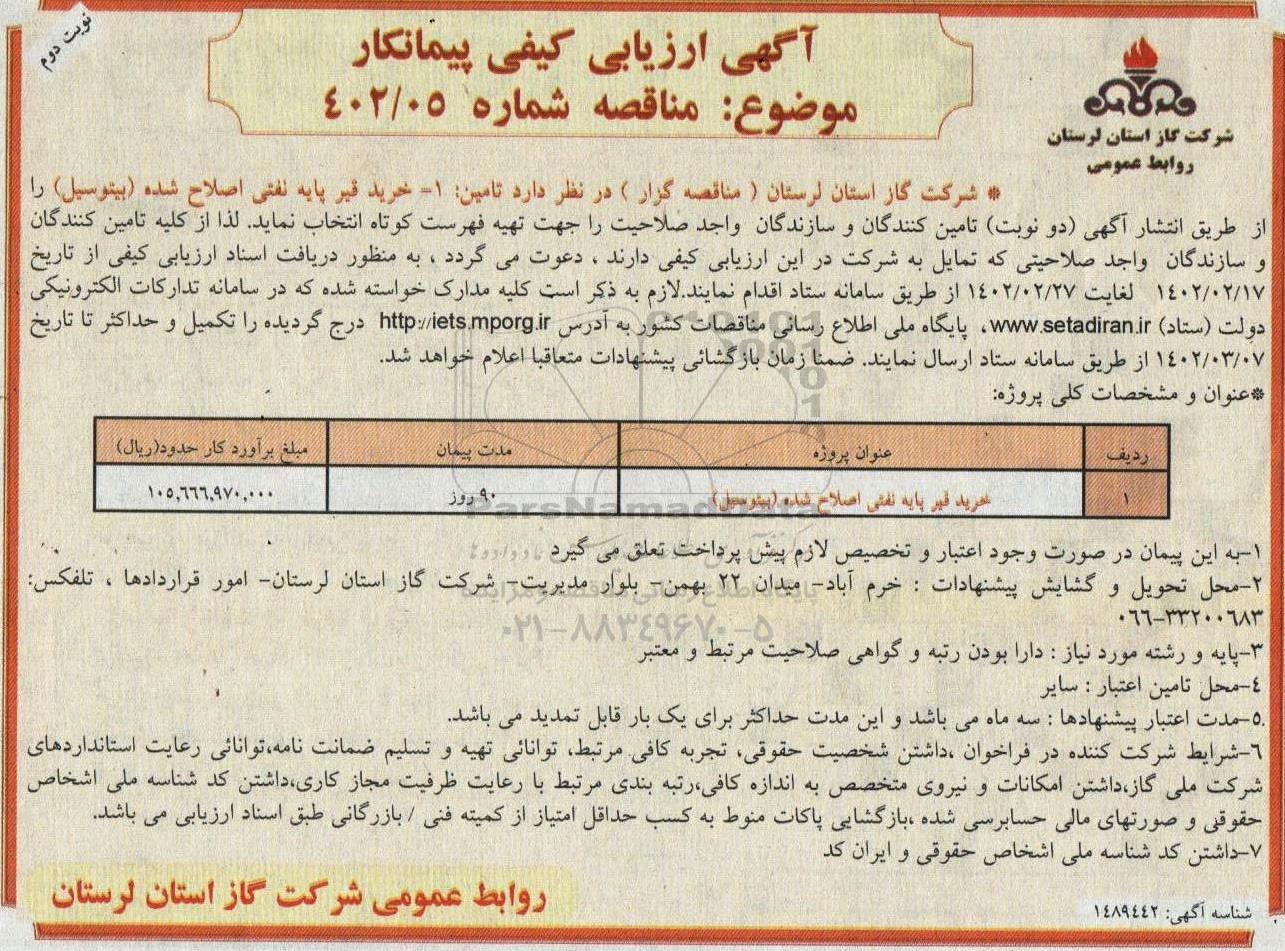 نوبت دوم
آگهی ارزیابی کیفی پیمانکار
موضوع: مناقصه شماره ٤٠٢/٠٥
شرکت گاز استان لرستان
روابط عمومی
* شرکت گاز استان لرستان ( مناقصه گزار ) در نظر دارد تامین: ١- خرید قیر پایه نفتی اصلاح شده (بیتوسیل) را
از طریق انتشار آگهی (دو نوبت) تامین کنندگان و سازندگان واجد صلاحیت را جهت تهیه فهرست کوتاه انتخاب نماید. لذا از کلیه تامین کنندگان
و سازندگان واجد صلاحیتی که تمایل به شرکت در این ارزیابی کیفی دارند ، دعوت می گردد ، به منظور دریافت اسناد ارزیابی کیفی از تاریخ
١٤٠٢/٠٢/١٧ لغایت ١٤٠٢/٠٢/٢٧ از طریق سامانه ستاد اقدام نمایند.لازم به ذکر است کلیه مدارک خواسته شده که در سامانه تدارکات الکترونیکی
دولت (ستاد) www.setadiran.ir، پایگاه ملی اطلاع رسانی مناقصات کشور به آدرس http://iets.mporg.ir درج گردیده را تکمیل و حداکثر تا تاریخ
١٤٠٢/٠٣/٠٧ از طریق سامانه ستاد ارسال نمایند. ضمنا زمان بازگشائی پیشنهادات متعاقبا اعلام خواهد شد.
*عنوان و مشخصات کلی پروژه:
ردیف عنوان پروژه مدت پیمان مبلغ برآورد کار حدود(ریال)
١ خرید قیر پایه نفتی اصلاح شده (بیتوسیل) ٩٠ روز ١٠٥,٦٦٦,٩٧٠,٠٠٠
ParsNamadData
١-به این پیمان در صورت وجود اعتبار و تخصیص لازم پیش پرداخت تعلق می گیرد
٢-محل تحویل و گشایش پیشنهادات : خرم آباد- میدان ٢٢ بهمن- بلوار مدیریت- شرکت گاز استان لرستان- امور قراردادها ، تلفکس:
٠٦٦-٣٣٢٠٠٦٨٣
٠٢١-٨٨٣٤٩٦٧٠-٥
٣-پایه و رشته مورد نیاز : دارا بودن رتبه و گواهی صلاحیت مرتبط و معتبر
٤-محل تامین اعتبار : سایر
٥-مدت اعتبار پیشنهادها : سه ماه می باشد و این مدت حداکثر برای یک بار قابل تمدید می باشد.
٦-شرایط شرکت کننده در فراخوان ،داشتن شخصیت حقوقی، تجربه کافی مرتبط، توانائی تهیه و تسلیم ضمانت نامه،توانائی رعایت استانداردهای
شرکت ملی گاز،داشتن امکانات و نیروی متخصص به اندازه کافی،رتبه بندی مرتبط با رعایت ظرفیت مجاز کاری،داشتن کد شناسه ملی اشخاص
حقوقی و صورتهای مالی حسابرسی شده ،بازگشایی پاکات منوط به کسب حداقل امتیاز از کمیته فنی / بازرگانی طبق اسناد ارزیابی می باشد.
٧-داشتن کد شناسه ملی اشخاص حقوقی و ایران کد
روابط عمومی شرکت گاز استان لرستان
شناسه آگهی: ١٤٨٩٤٤٢